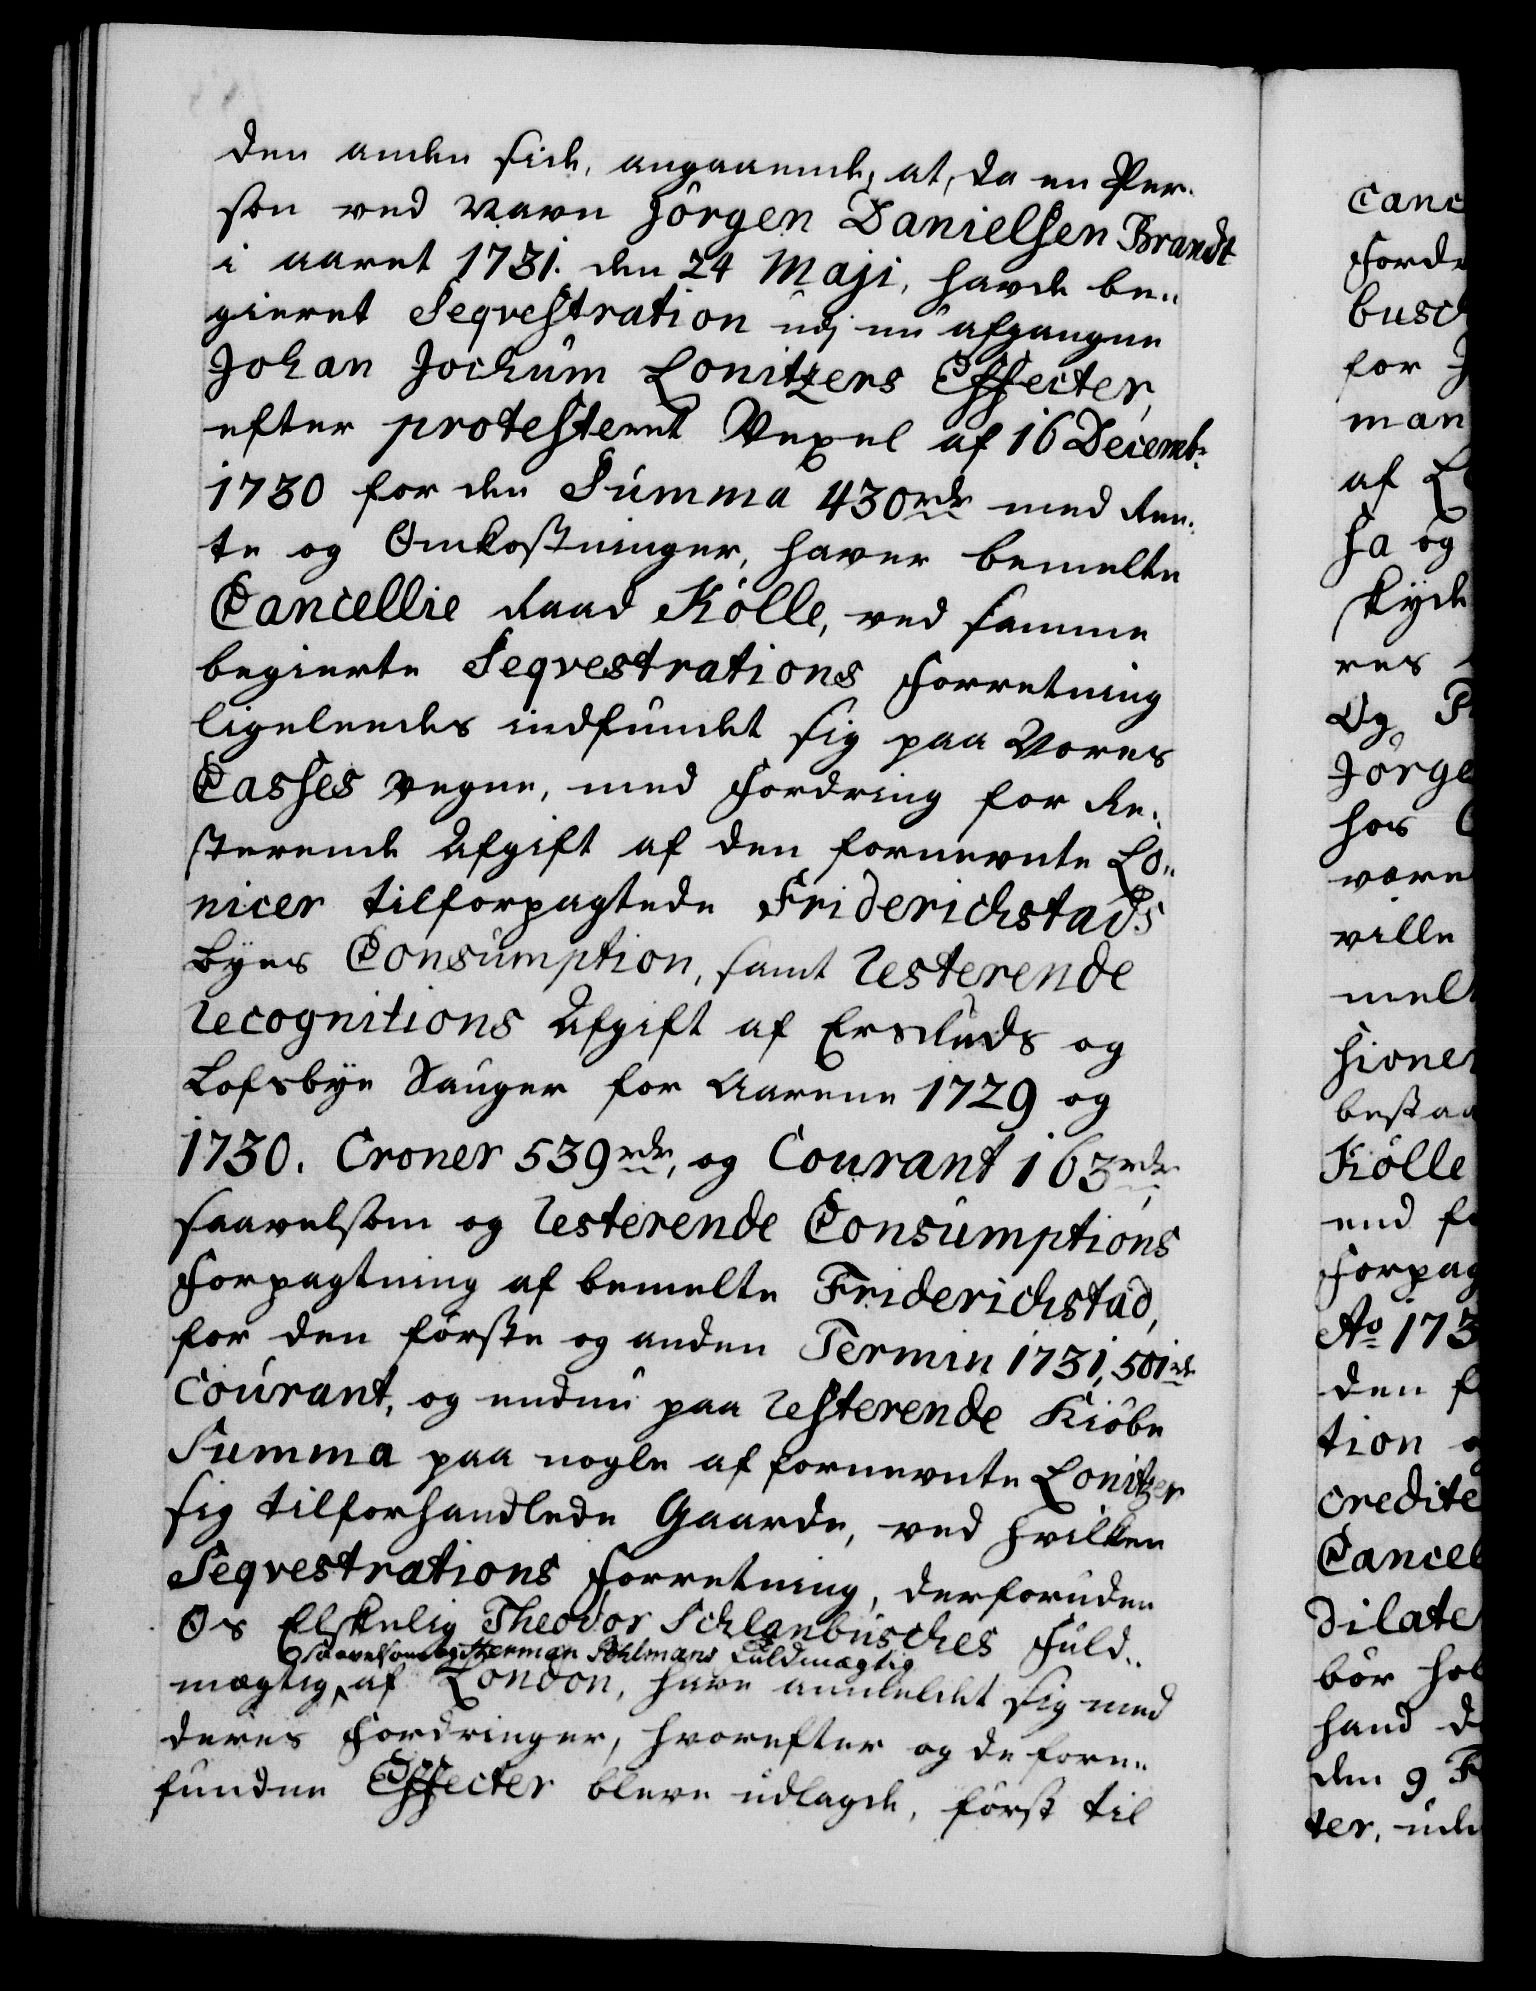 den anden side, angaaende, at, da en Per-
son ved Navn Jörgen Danielsen Brandt
i aaret 1731. den 24 Maji, havde be-
gieret Seqvestration udj nu afgangne
Johan Jochum Lonitzers Effecter,
efter protesteret Vexel af 16 Decembr
1730 for den Summa 430 rdr med Ren-
te og Omkostninger, haver bemelte
Cancellie Raad Kölle, ved samme
begierte Seqvestrations Forretning
ligeleedes indfundet sig paa Vores
Casses vegne, med Fordring for Re-
sterende Afgift af den fornevnte Lo-
nicer tilforpagtede Friderichstads
Byes Consumption, samt Resterende
Recognitions Afgift af Ersluds og
Lofsbye Sauger for Aarene 1729 og
1730. Croner 539 rdr, og Courant 163 rdr,
saavelsom og Resterende Consumptions
Forpagtning af bemelte Friderichstad,
for den förste og anden Termin 1731, 501 rdr
Courant, og endnu paa Resterende Kiöbe
Summa paa nogle af fornevnte Lonitzer
sig tilforhandlede Gaarde, ved hvilken
Seqvestrations Forretning, derforuden
Os Elskelig Theodor Schlanbusches Fuld-
saavelsom og Herman Pohlmans Fuldmægtig
mægtig, af London, have anmeldet sig med
deres Fordringer, hvorefter og de fore-
fundne Effecter bleve udlagde, först til
Canc
Forde
busch
for J
man
af Lo
Ha og
skyde
res
Og
Jörge
hos
være
ville
melt
sione
bestaa
Kölle
end f
Forpag
Ao 173
den f
tion o
Credite
Cancel
Dilate
bör hol
hand d
den 9 F
ter, ude